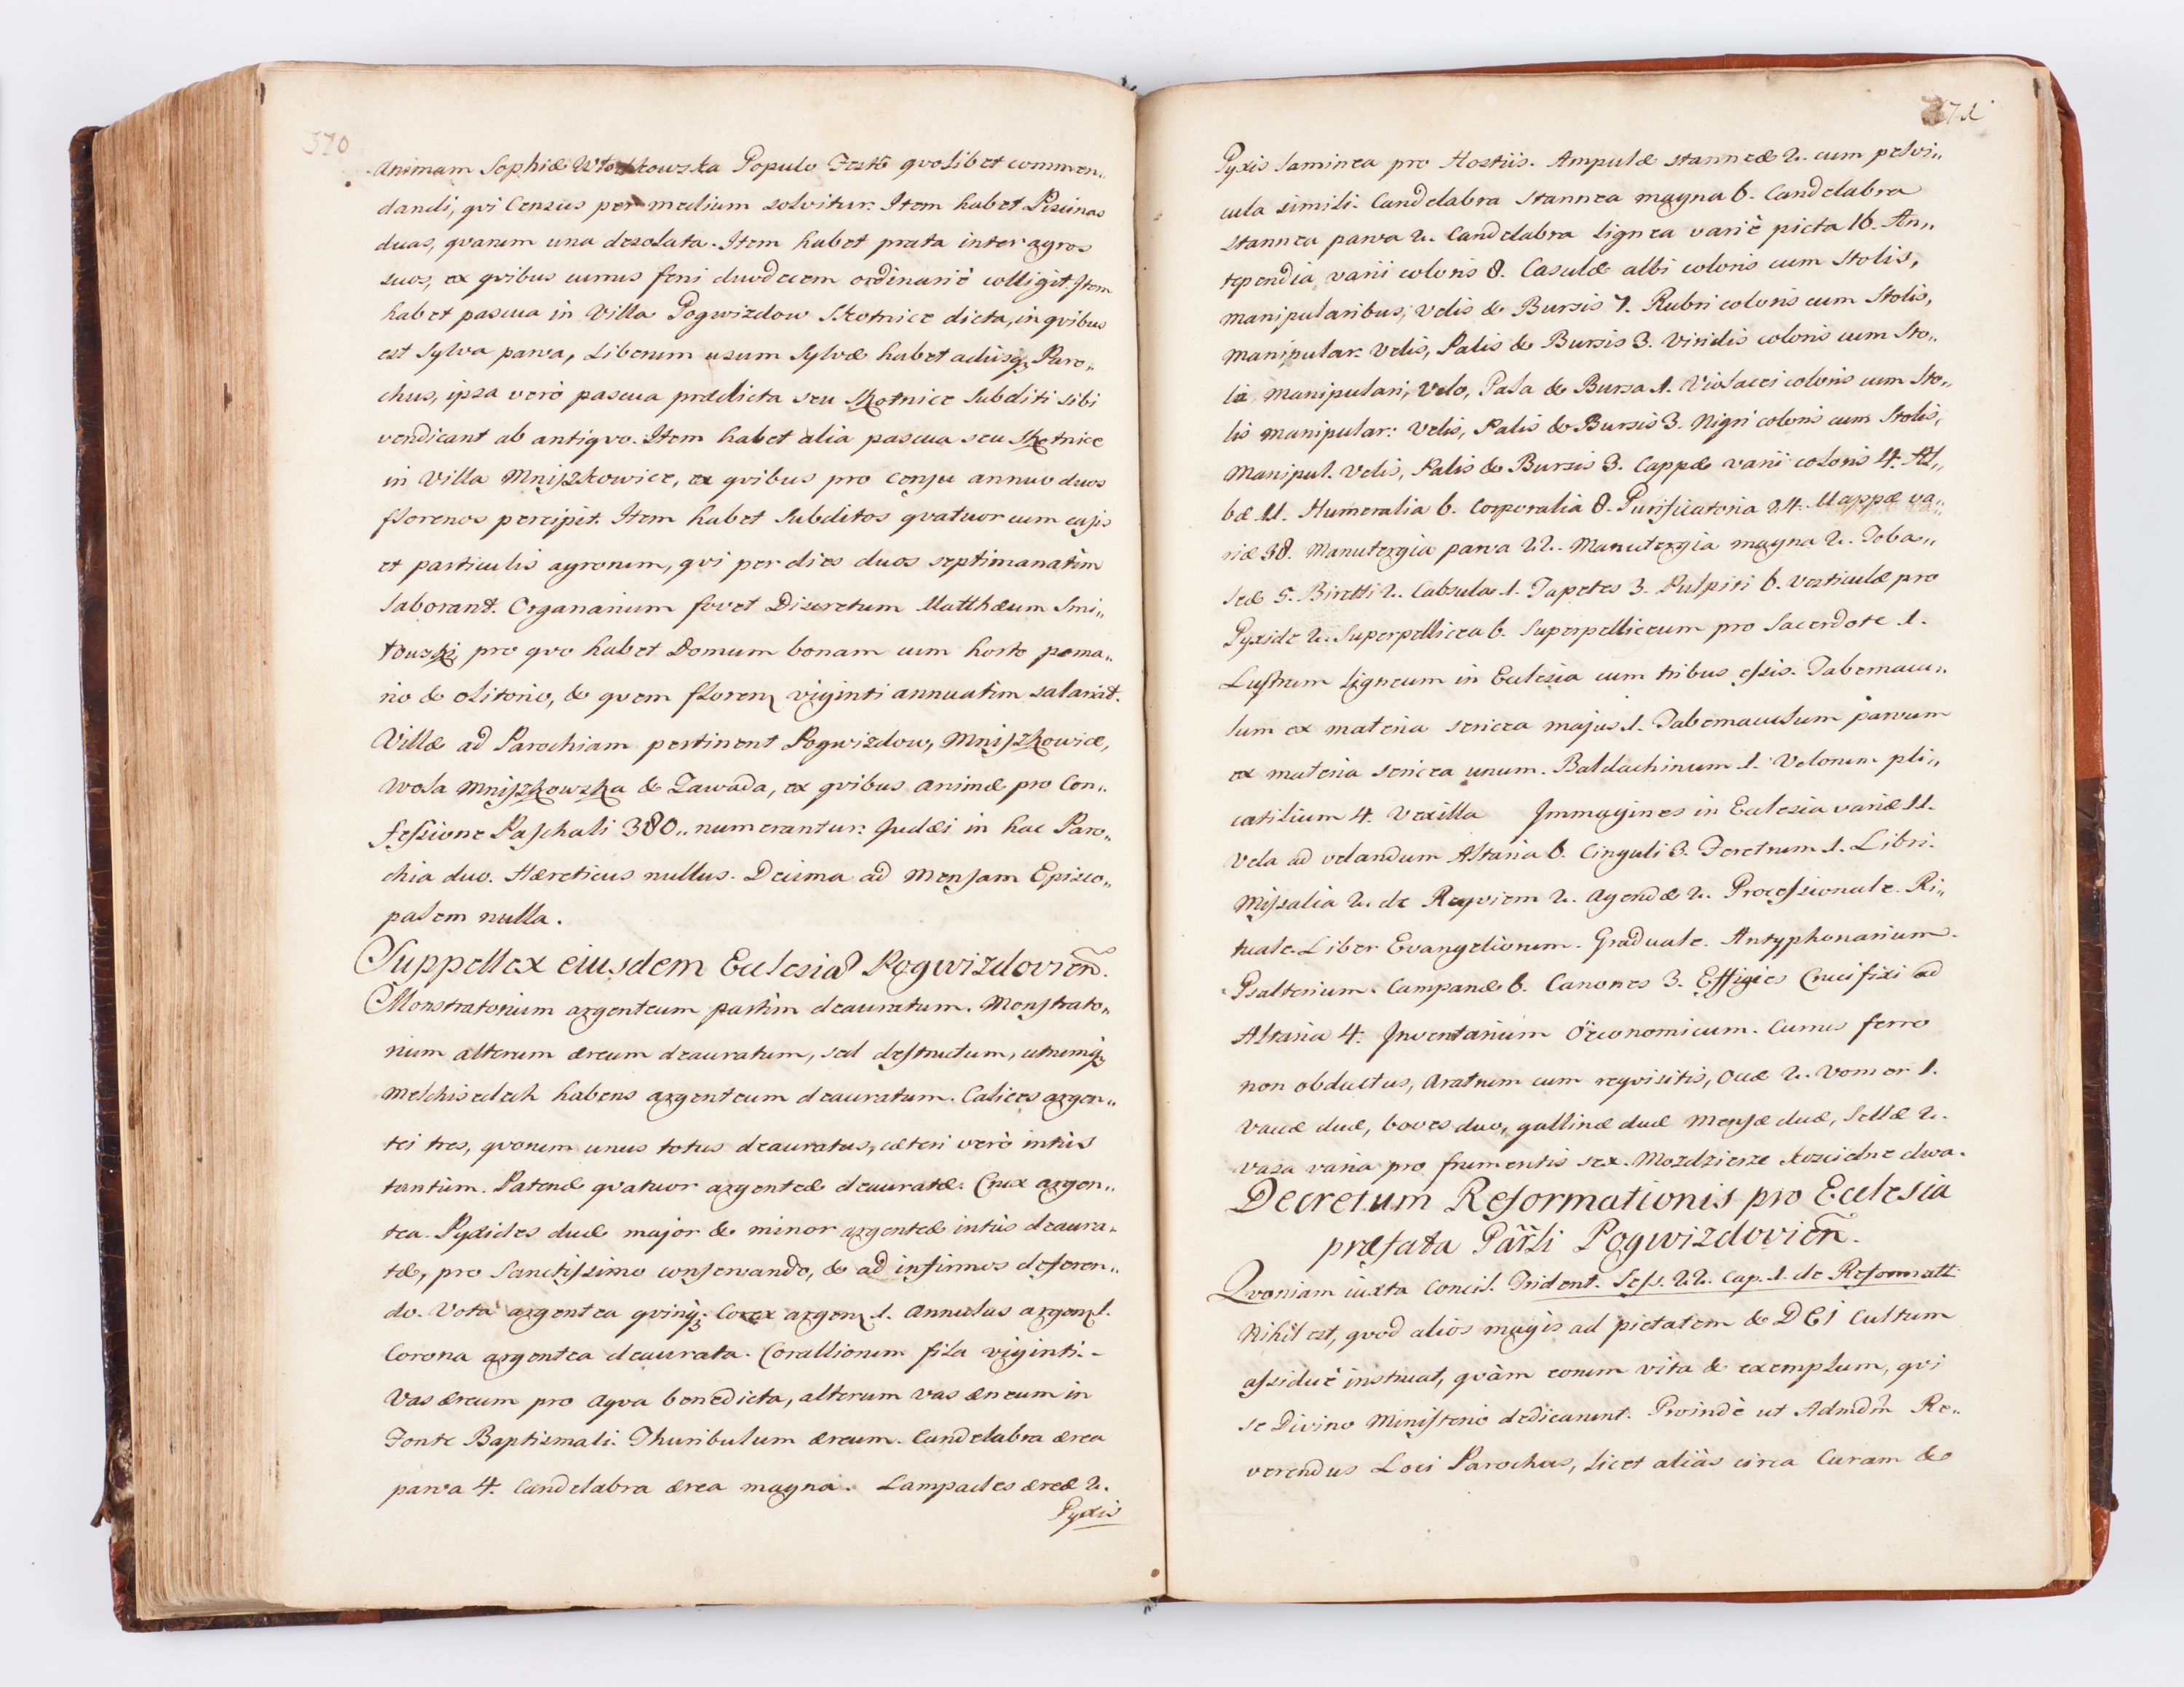 370
Animam Sophiæ Populo Festo qvolibet commen„
dandi, qvi Census per medium solvitur. Item habet Piscinas
duas, qvarum una desolata. Item habet prata inter agros
suos, ex qvibus currus feni duodecem ordinariè colligit. Item
habet pascua in Villa Pogwizdow Skotnice dicta, in qvibus
est sylva parva, Liberum usum sylvæ habet adusq; Paro„
chus, ipsa verò pascua prædicta seu Skotnice Subditi sibi
vendicant ab antiqvo. Item habet alia pascua seu Skotnice
in Villa Mniszkowice, ex qvibus pro censu annuo duos
florenos percipit. Item habet Subditos qvatuor cum casis
et particulis agrorum, qvi per dies duos septimanatim
laborant. Organarium fovet Discretum Matthæum Smi„
towski, pro qvo habet Domum bonam cum horto poma„
rio & olitorio, & qvem floren viginti annuatim salariat.
Villæ ad Parochiam pertinent Pogwizdow, Mniszkowicæ,
Wola Mniszkowska & Zawada, ex qvibus animæ pro Con„
fessione Paschali 380„ numerantur. Judæi in hac Paro„
chia duo. Hæreticus nullus. Decima ad Mensam Episco„
palem nulla.
Suppellex eiusdem Ecclesiæ Pogwizdovien̄.
Monstratorium argenteum partim deauratum. Monstrato„
rium alterum æreum deauratum, sed destructum, utrumq;
Melchisedech habens argenteum deauratum. Calices argen„
tei tres, qvorum unus totus deauratus, cæteri verò intùs
tantùm. Patenæ qvatuor argenteæ deauratæ. Crux argen„
tea. Pyxides duæ major & minor argenteæ intùs deaura„
tæ, pro Sanctissimo conservando, & ad infirmos deferen„
do. Vota argentea qvinq; argen 1. Annulus argen 1.
Corona argentea deaurata. Corallionum fila viginti.-
Vas æreum pro aqva benedicta, alterum vas æneum in
Fonte Baptismali. Thuribulum æreum. Candelabra ærea
parva 4. Candelabra ærea magna. Lampades æreæ 2.
Pyxis
371
Pyxis laminea pro Hostiis. Ampulæ stanneæ 2. cum pelvi„
cula simili. Candelabra stannea magna 6. Candelabra
stannea parva 2. Candelabra lignea variè picta 16. An„
tependia varii coloris 8. Casulæ albi coloris cum stolis,
manipularibus, velis & Bursis 7. Rubri coloris cum Stolis,
manipular: velis, Palis & Bursis 3. Viridis coloris cum Sto„
la, manipulari, Velo, Pala & Bursa 1. Violacei coloris cum Sto„
lis manipular: Velis, Palis & Bursis 3. Nigri coloris cum Stolis,
Manipul. Velis, Palis & Bursis 3. Cappæ varii coloris 4. Al„
bæ 11. Humeralia 6. Corporalia 8. Purificatoria 24. Mappæ va„
riæ 38. Manutergia parva 22. Manutergia magna 2. Toba„
leæ 5. Biretti 2. Capsula 1. Tapetes 3. Pulpiti 6. Vesticulæ pro
Pyxide 2. Superpellicea 6. Superpelliceum pro Sacerdote 1.
Lustrum ligneum in Ecclesia cum tribus Tabernacu„
lum ex materia sericea majus 1. Tabernaculum parvum
ex materia sericea unum. Baldachinum 1. Velorum pli„
catilium 4. Vexilla Jmmagines in Ecclesia variæ 11.
Vela ad velandum Altaria 6. Cinguli 3. Feretrum 1. Libri.
Missalia 2. de Reqviem 2. Agendæ 2. Processionale. Ri„
tuale. Liber Evangeliorum. Graduale. Antyphonarium.
Psalterium. Campanæ 6. Canones 3. Effigies Crucifixi ad
Altaria 4. Jnventarium Oëconomicum. Currus ferro
non obductus, Aratrum cum reqvisitis, Occæ 2. Vomer 1.
Vaccæ duæ, boves duo, gallinæ duæ Mensæ duæ, Sellæ 2.
Vasa varia pro frumentis sex. Mozdzierze kościelne dwa.
Decretum Reformationis pro Ecclesia
præfata Par̃li Pogwizdovien̄.
Qvoniam iuxta Concil. Trident. Sess. 22. Cap. 1. de Reformatt
Nihil est, qvod alios magis ad pietatem & DEI Cultum
assiduè instruat, qvàm eorum vita & exemplum, qvi
se Divino Ministerio dedicarunt. Proindè ut Admdm̃ Re„
verendus Loci Parochus, licet aliàs circa Curam &